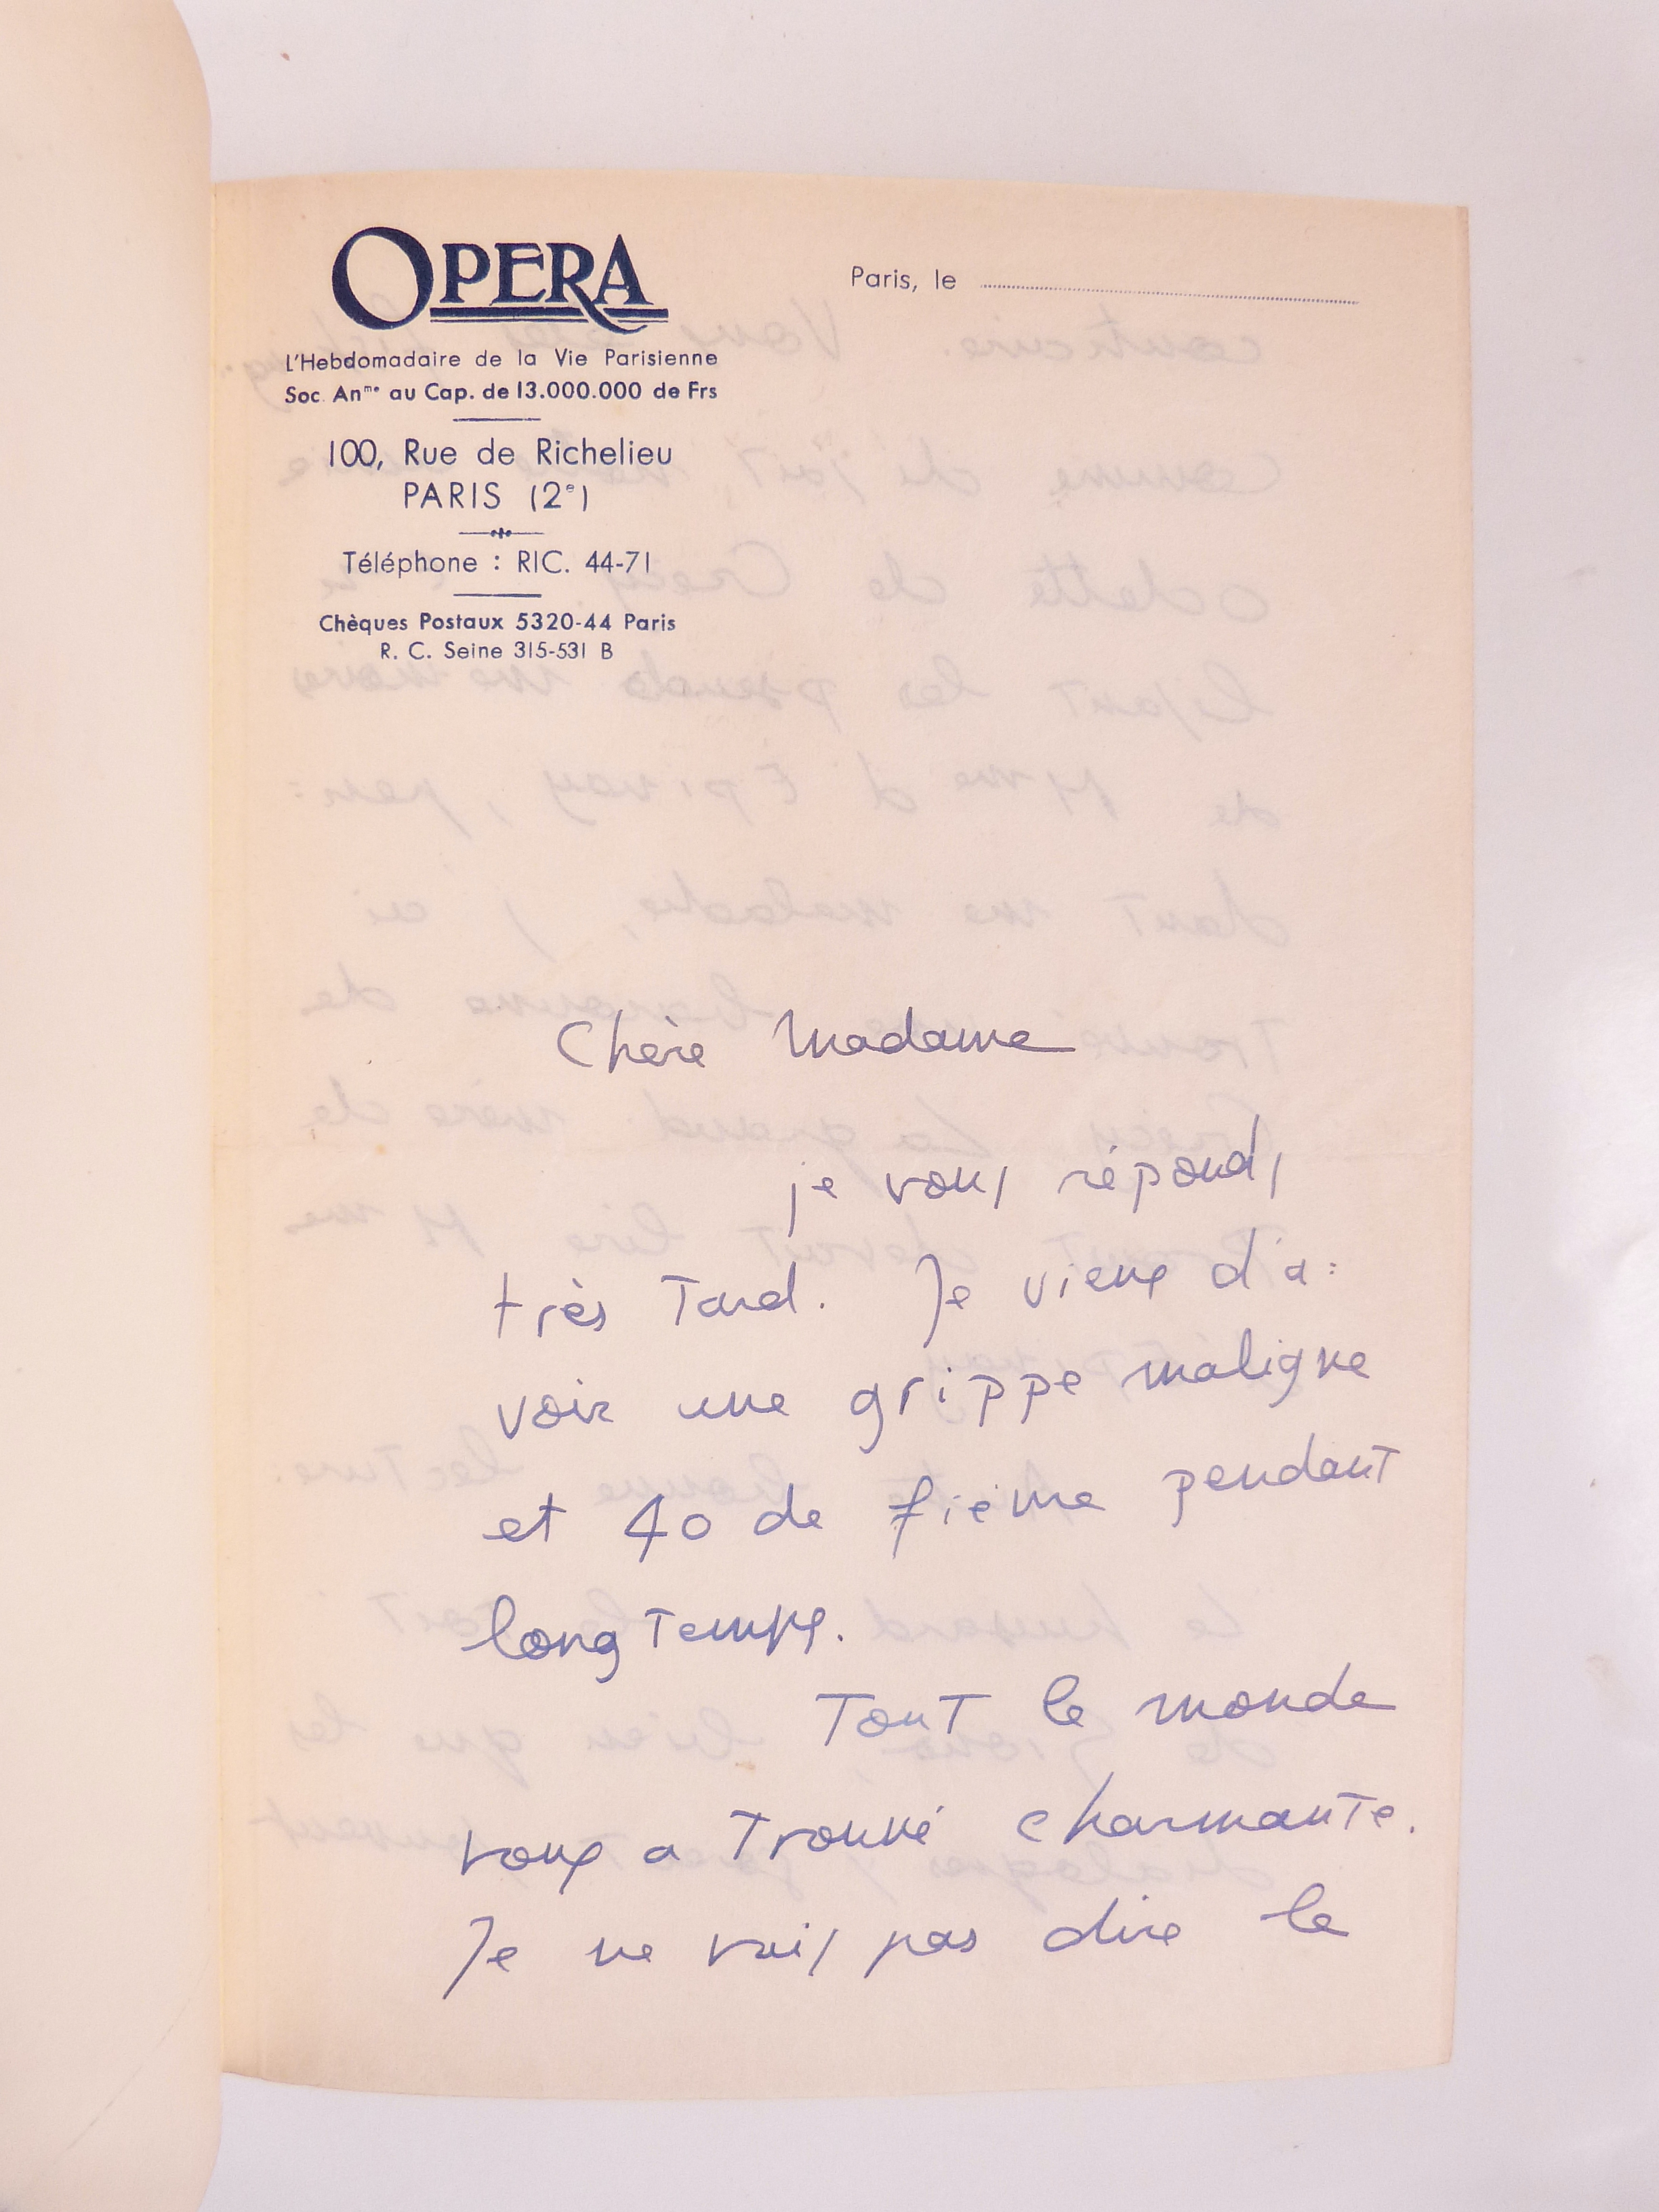 OPERA
L'Hebdomadaire de la Vie Parisienne
Soc. Anme au Cap. de 13.000.000 de Frs
100, Rue de Richelieu
PARIS (2e)
Téléphone : RIC. 44-71
Chèques Postaux 5320-44 Paris
R. C. Seine 315-531 B
Paris, le
Chère Madame
je vous réponds
très tard. Je viens d'a:
voir une grippe maligne
et 40 de fièvre pendant
longtemps.
Tout le monde
vous a trouvé charmante.
Je ne vais pas dire le